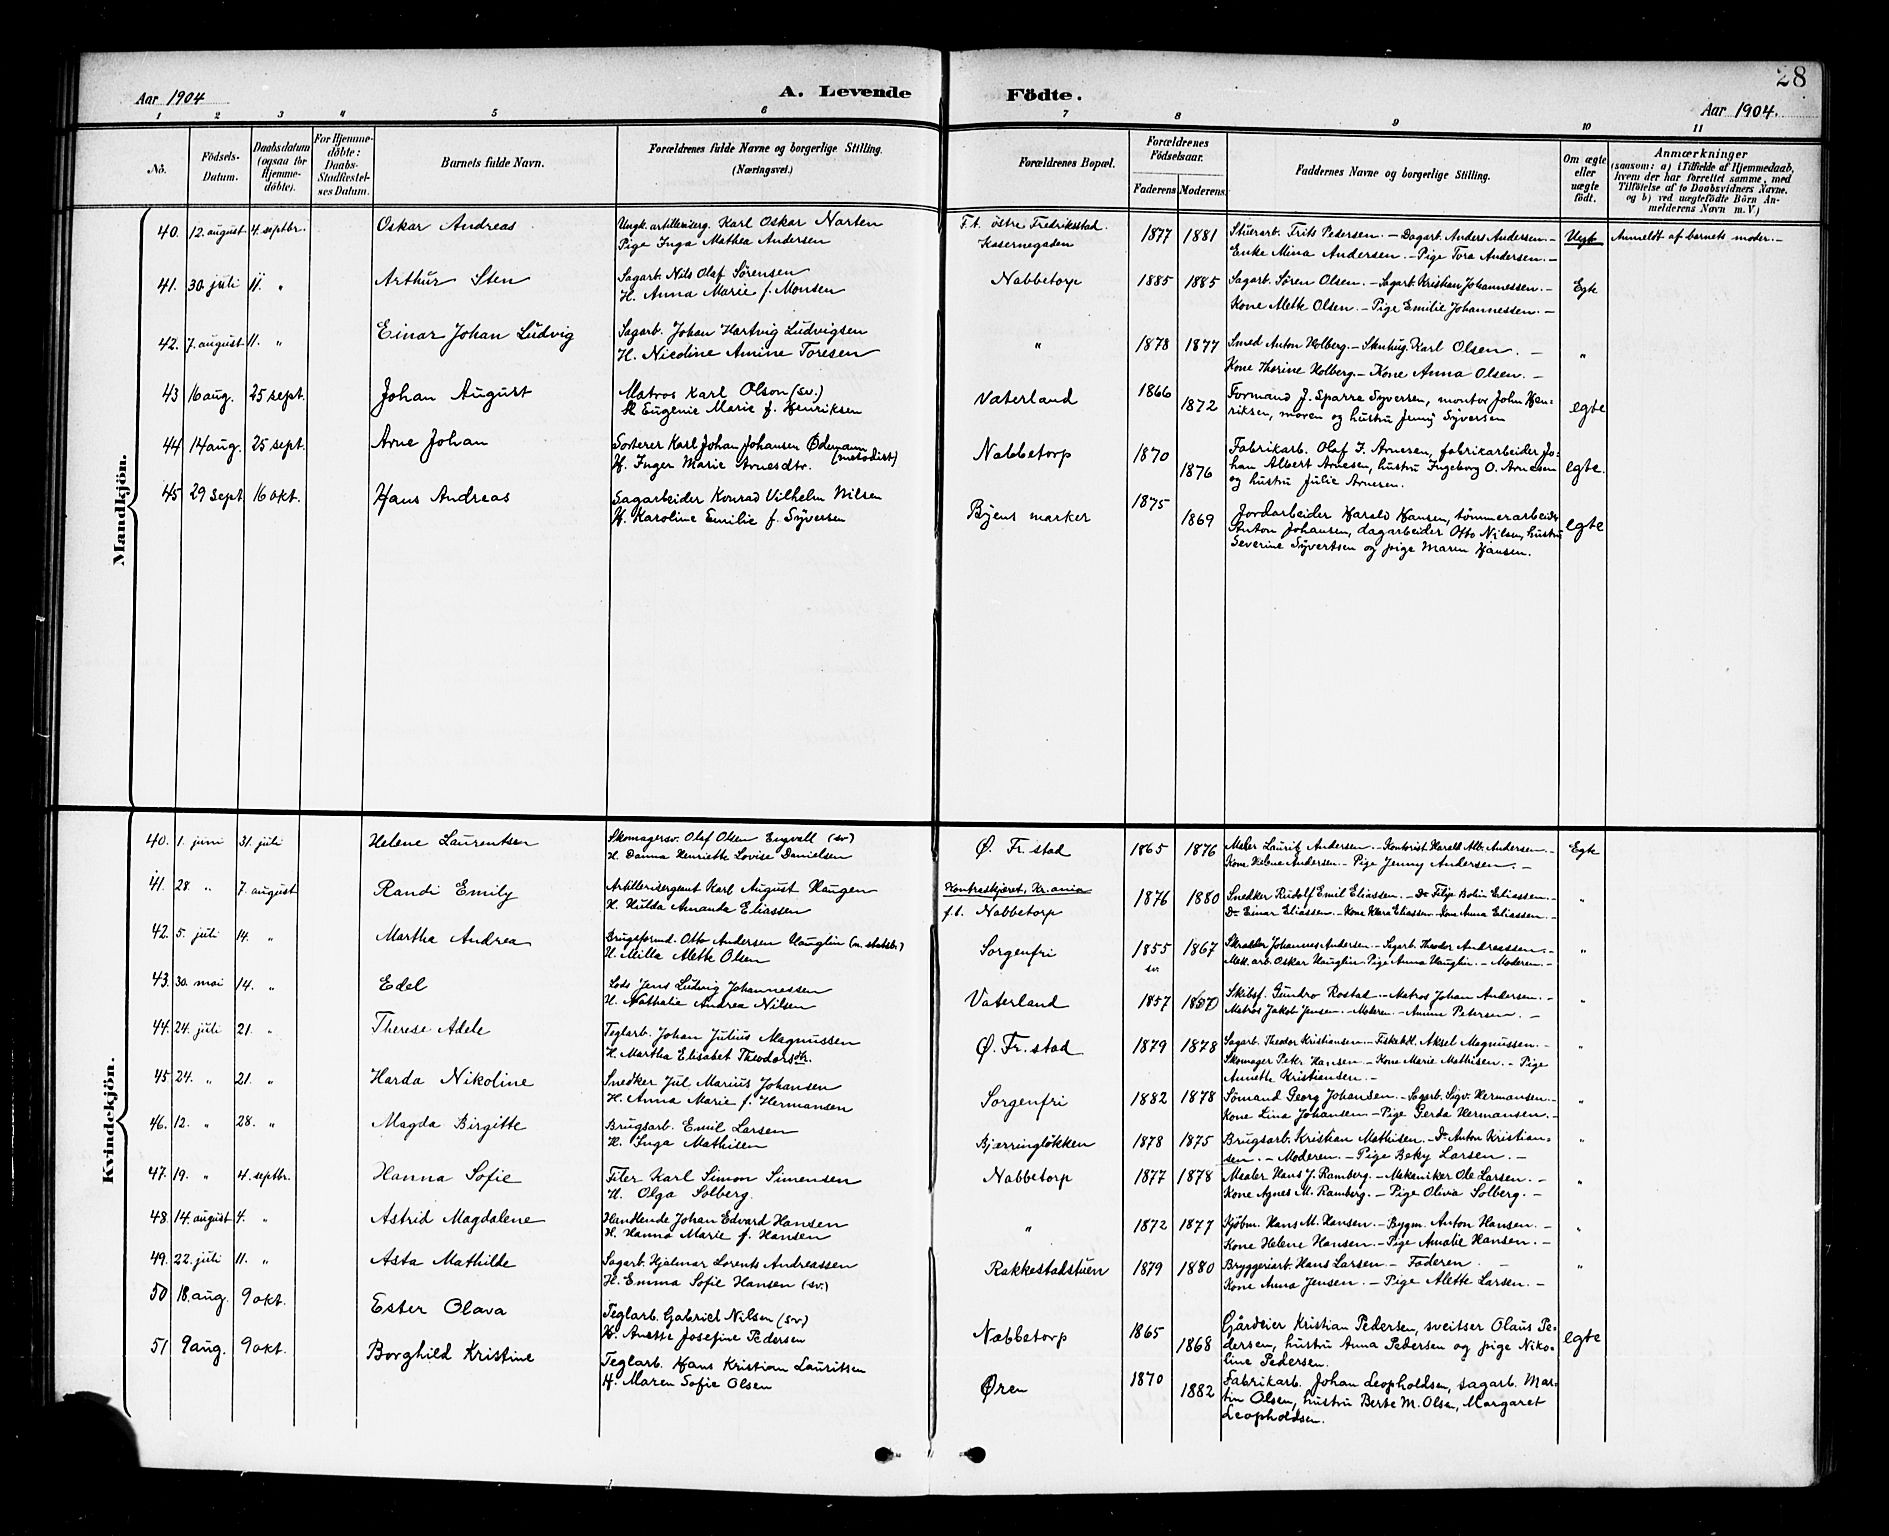 28
Aar 1904
A. Levende Fødte.
Aar 1904.
1 2 3 4 5 6 7 8 9 10 11
No.
Födsels-Datum.
Daabsdatum (ogsaa for Hjemmedöbte).
For Hjemmedöbte: Daabs-Stadfæstelses Datum.
Barnets fulde Navn.
Forældrenes fulde Navne og borgerlige Stilling. (Næringsvei.)
Forældrenes Bopæl.
Forældrenes Födselsaar.
Faderens Moderens.
Faddernes Navne og borgerlige Stilling.
Om ægte eller uægte födt.
Anmærkninger
(saasom: a) i Tilfælde af Hjemmedaab, hvem der har forrettet samme, med Tilföielse af to Daabsvidners Navne. og b) ved uægtefödte Börn Anmelderens Navn m. V.)
Mandkjön.
40. 12. august 4. septbr. Oskar Andreas
Ungk. artillerisrg. Karl Oskar Narten
Pige Inga Mathea Andersen
F.t. østre Fredriksstad.
Kasernegaden
1877 1881
Stuerarb. Frits Pedersen. – Dagarb. Anders Andersen. –
Enke Mina Andersen. – Pige Tora Andersen. –
Uegte Anmeldt af barnets moder. –
41. 30. juli 11. " Arthur Sten
Sagarb. Nils Olaf Sørensen
H. Anna Marie f. Monsen
Nabbetorp 1885 1885
Sagarb. Søren Olsen. – Sagarb. Kristian Johannessen. –
Kone Alette Olsen. – Pige Emilie Johannessen. –
Egte
42. 7. august 11. " Einar Johan Ludvig
Sagarb. Johan Hartvig Ludvigsen
H. Nicoline Amine Toresen
" 1878 1877
Smed Anton Holberg. – Skuhug. Karl Olsen. –
Kone Thorine Holberg. – Kone Anna Olsen. –
"
43 16 aug. 25 sept. Johan August
Matros Karl Olson (sv.)
H Eugenie Marie f. Henriksen
Vaterland 1866 1872
Formand J. Sparre Syversen, montør John Hen-
riksen, moren og hustru Jenny Syversen
egte
44 14 aug. 25 sept. Arne Johan
Sorterer Karl Johan Johansen Ødemann
H. Inger Marie Arnesdtr. (metodist)
Nabbetorp 1870 1876
Fabrikarb. Olaf I. Arnesen, fabrikarbeider Jo-
han Albert Arnesen, hustru Ingeborg O. Arnesen
og hustru Julie Arnesen.
egte.
45 29 sept 16 okt. Hans Andreas
Sagarbeider Konrad Vilhelm Nilsen
H. Karoline Emilie f. Syversen
Byens marker 1875 1869
Jordarbeider Harald Hansen, tømmerarbeider
Anton Johansen, dagarbeider Otto Nilsen, hustru
Severine Syvertsen og pige Maren Hansen.
egte
Kvindekjön.
40. 1. juni 31. juli Helene Laurentsen
Skomagersv. Olaf Olsen Engvall (sv)
H. Danna Henriette Lovise Danielsen
Ø. Fr. stad 1865 1876
Maler Lauritz Andersen. – Kontorist Harald Alb. Andersen. –
Kone Helene Andersen. – Pige Jenny Andersen. –
Egte
41. 28. " 7. august Randi Emily
Artillerisergeant Karl August Haugen
H. Hulda Amanda Eliassen
Kontraskjæret, Kr.ania
f.t. Nabbetorp
1876 1880
Snedker Rudolf Emil Eliassen. – Do Filip Bolin Eliassen. –
Do Einar Eliassen. – Kone Klara Eliassen. Kone Anna Eliassen. –
"
42. 5. juli 14. " Martha Andrea
Brugsformd. Otto Andersen Hauglin (n. statsb.)
H. Milla Alette Olsen
Sorgenfri 1855 sv. 1867
Skrædder Johannes Andersen. – Sagarb. Theodor Andreassen. –
Mek. arb. Oskar Hauglin. Pige Anna Hauglin. – Moderen. –
"
43. 30. mai 14. " Edel
Lods Jens Ludvig Johannessen
H. Nathalie Andrea Nilsen
Vaterland 1857
Skibsf. Gundro Rostad. – Matros Johan Andersen. –
Matros Jakob Jensen. – Moderen. – Amine Petersen. –
"
44. 24. juli 21. " Therese Adele
Teglarb. Johan Julius Magnussen
H. Martha Elisabet Theodorsdtr.
Ø. Fr. stad 1879 1878
Sagarb. Theodor Kristiansen. – Fiskehdl. Aksel Magnussen. –
Skomager Petter Hansen – Kone Marie Mathisen. – Pige
Annette Kristiansen. –
"
45 24. " 21. " Harda Nikoline
Snedker Jul. Marius Johansen
H. Anna Marie f. Hermansen
Sorgenfri 1882 1878
Sømand Georg Johansen. – Sagarb. Sigv. Hermansen. –
Kone Lina Johansen – Pige Gerda Hermansen. –
"
46. 12. " 28. " Magda Birgitte
Brugsarb. Emil Larsen
H. Inga Mathisen
Bjærringløkken 1878 1875
Brugsarb. Kristian Mathisen. – Do Anton Kristian-
sen. – Moderen. – Pige Beky Larsen. –
"
47. 19. " 4. septbr. Hanna Sofie
Filer Karl Simon Simensen
H. Olga Solberg.
Nabbetorp 1877 1878
Maaler Hans J. Ramberg. – Mekaniker Ole Larsen. –
Kone Agnes M. Ramberg. – Pige Olivia Solberg. –
"
48. 14. august 4. " Astrid Magdalene
Handlende Johan Edvard Hansen
H. Hanna Marie f. Hansen
" 1872 1877
Kjøbm. Hans M. Hansen. – Bygm. Anton Hansen. –
Kone Helene Hansen. – Pige Amalie Hansen. –
"
49. 22. juli 11. " Asta Mathilde
Sagarb. Hjalmar Lorents Andreassen
H. Emma Sofie Hansen (sv.)
Rakkestadstuen 1879 1880
Bryggeriarb. Hans Larsen. – Faderen. –
Kone Anna Jensen. – Pige Alette Larsen. –
"
50 18. aug. 9 okt. Ester Olava
Teglarb. Gabriel Nilsen (sv)
H. Anette Josefine Pedersen
Nabbetorp 1865 1868
Gårdeier Kristian Pedersen, sveitser Olaus Pe-
dersen, hustru Anna Pedersen og pige Niko-
line Pedersen.
egte
51 9 aug. 9 okt. Borghild Kristine
Teglarb. Hans Kristian Lauritsen
H. Maren Sofie Olsen
Øren 1870 1882
Fabrikarb. Johan Leopholdsen, sagarb. Mar-
tin Olsen, hustru Berte M. Olsen, Margaret
Leopholdsen.